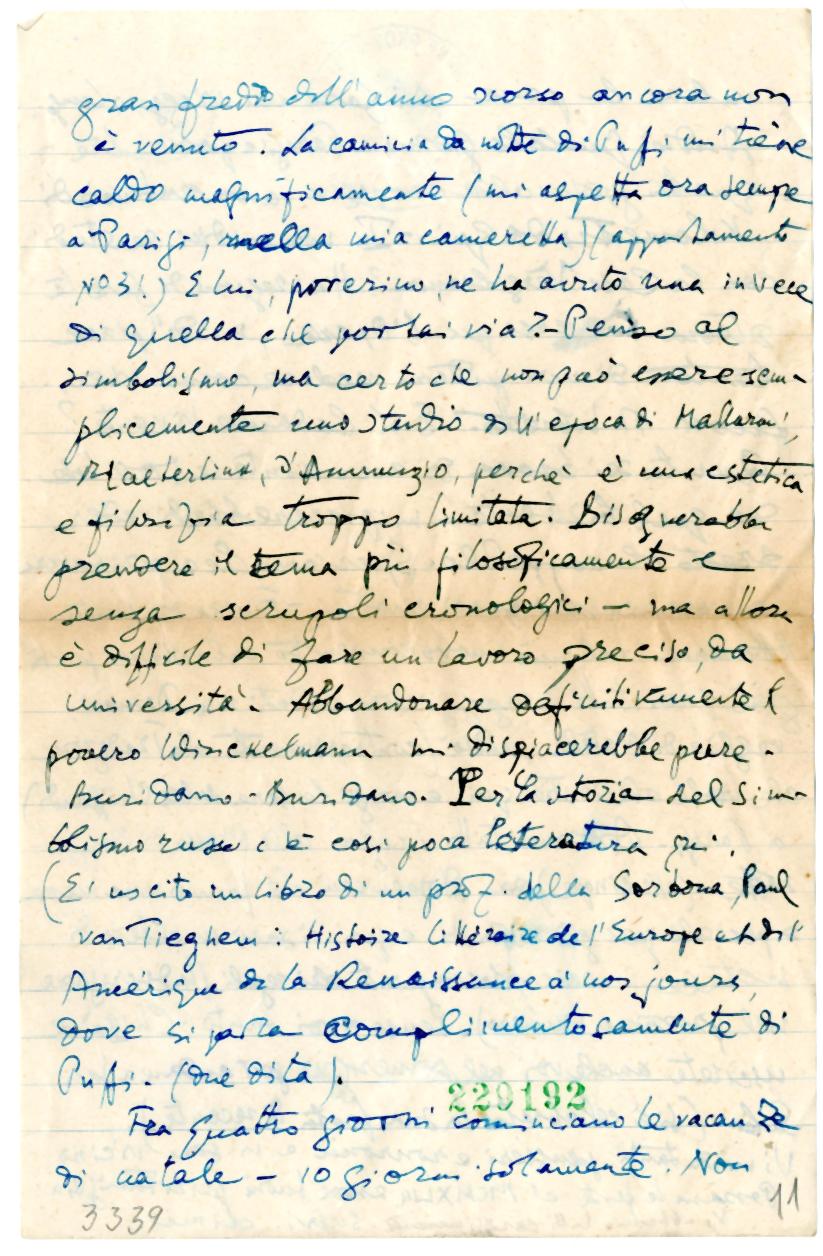 gran freddo dell'anno scorso ancora non
è venuto. La camicia da notte di Pufi mi tiene
caldo magnificamente (mi aspetta ora sempre
a Parigi, nella mia cameretta) (appartamento
No 3!) E lui, poverino, ne ha avuto una invece
di quella che portai via? - Penso al
simbolismo, ma certo che non può essere sem-
plicemente uno studio dell'epoca di Mallarmé,
Maeterlink, d'Annunzio, perchè è una estetica
e filosofia troppo limitata. Bisognerebbe
prendere il tema più filosoficamente e
senza scrupoli cronologici - ma allora
è difficile di fare un lavoro preciso, da
università. Abbandonare definitivamente il
povero Winckelmann mi dispiacerebbe pure.
Buridano - Buridano. Per la storia del sim-
bolismo russo c'è così poca letteratura qui.
(E' uscito un libro di un prof. della Sorbona, Paul
van Tieghem: Histoire littéraire de l'Europe et de l'
Amérique de la Renaissance à nos jours,
dove si parla complimentosamente di
Pufi. (due dita).
220192
Fra quattro giorni cominciano le vacanze
di natale - 10 giorni solamente. Non
3339
11